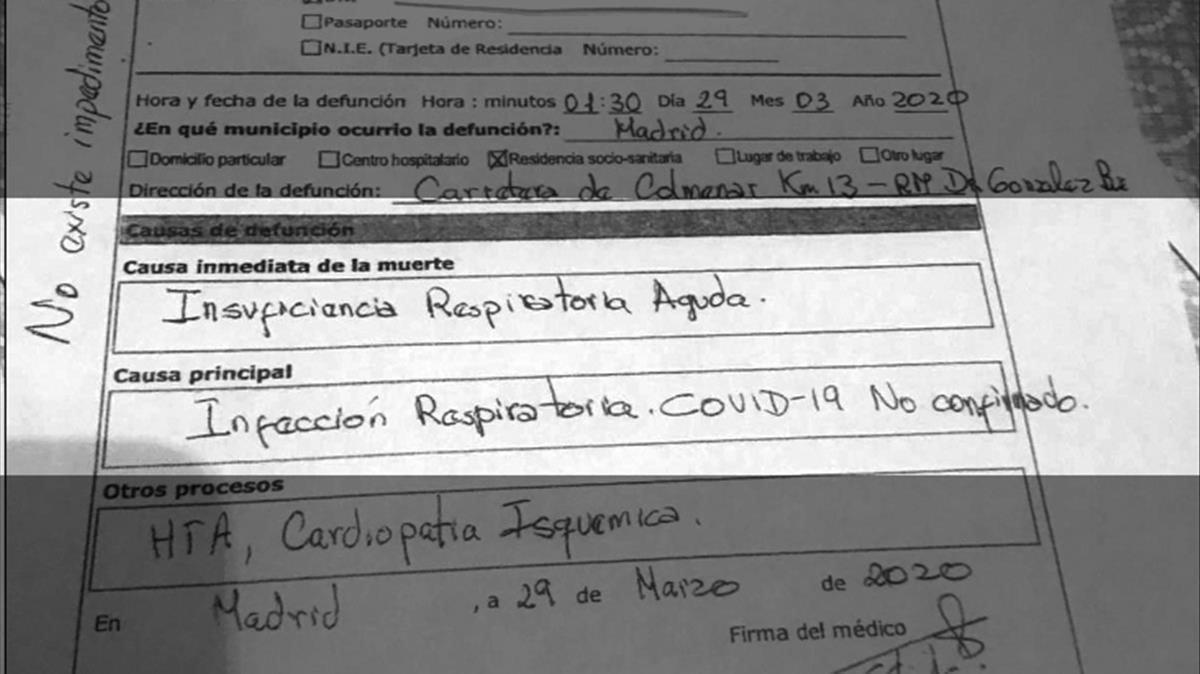 No existe impedimento
☐Pasaporte Número:
☐N.I.E. (Tarjeta de Residencia Número:
Hora y fecha de la defunción Hora : minutos 01:30 Día 29 Mes 03 Año 2020
¿En qué municipio ocurrio la defunción?: Madrid.
☐Domicilio particular ☐Centro hospitalario ☒Residencia socio-sanitaria ☐Lugar de trabajo ☐Otro lugar
Dirección de la defunción: Carretera de Colmenar Km 13 - RM Dr Gonzalez
Causas de defunción
Causa inmediata de la muerte
Insuficiencia Respiratoria Aguda.
Causa principal
Infección Respiratoria. COVID-19 No confirmado.
Otros procesos
HTA, Cardiopatia Isquemica.
En Madrid , a 29 de Marzo de 2020
Firma del médico